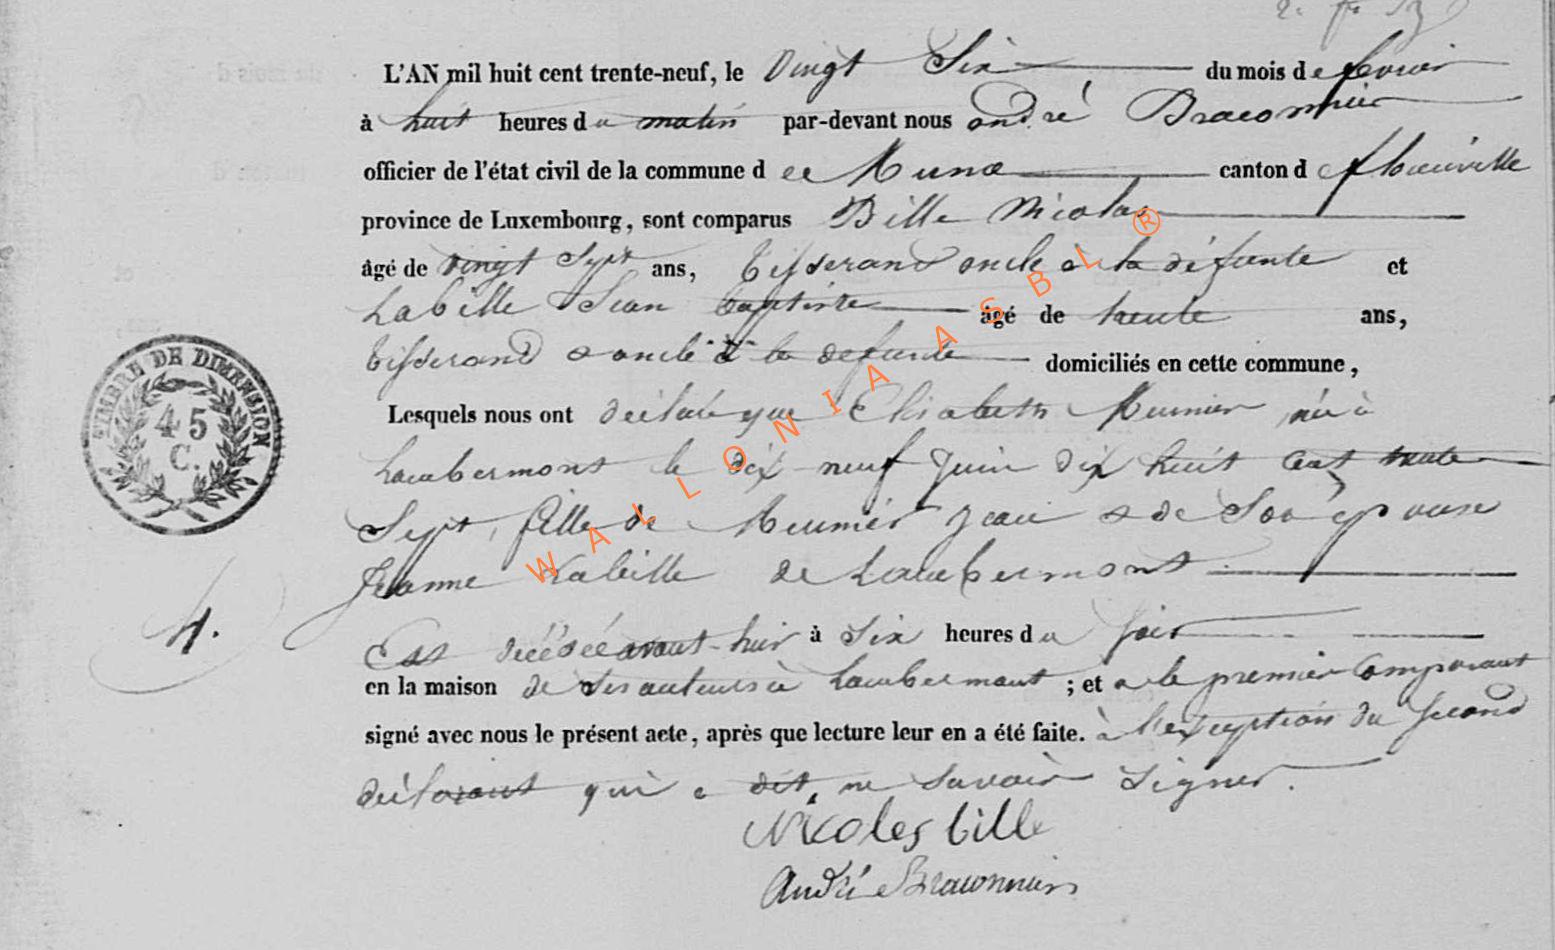 L'AN mil huit cent trente-neuf, le Vingt Six du mois de fevrier
à huit heures du matin par-devant nous andré Braconnier
officier de l'état civil de la commune de Muno canton de florenville
province de Luxembourg, sont comparus Bille Nicolas
âgé de vingt Sept ans, tisserand oncle à la défunte et
Labille Jean baptiste âgé de trente ans,
tisserand & oncle à la defunte domiciliés en cette commune,
Lesquels nous ont déclaré que Elisabeth Meunier née à
Lambermont le dix neuf Juin dix huit Cent trente
Sept, fille de Meunier Jean & de Son épouse
Jeanne Labille de Lambermont
4.
Est décédée avant-hier à Six heures du soir
en la maison de ses auteurs à Lambermont ; et a le premier Comparant
signé avec nous le présent acte, après que lecture leur en a été faite. à l'exception du Second
déclarant qui a dit ne Savoir Signer.
Nicoles bille
André Braconnier
TIMBRE DE DIMENSION
45
C.
WALLONIA ASBL ®